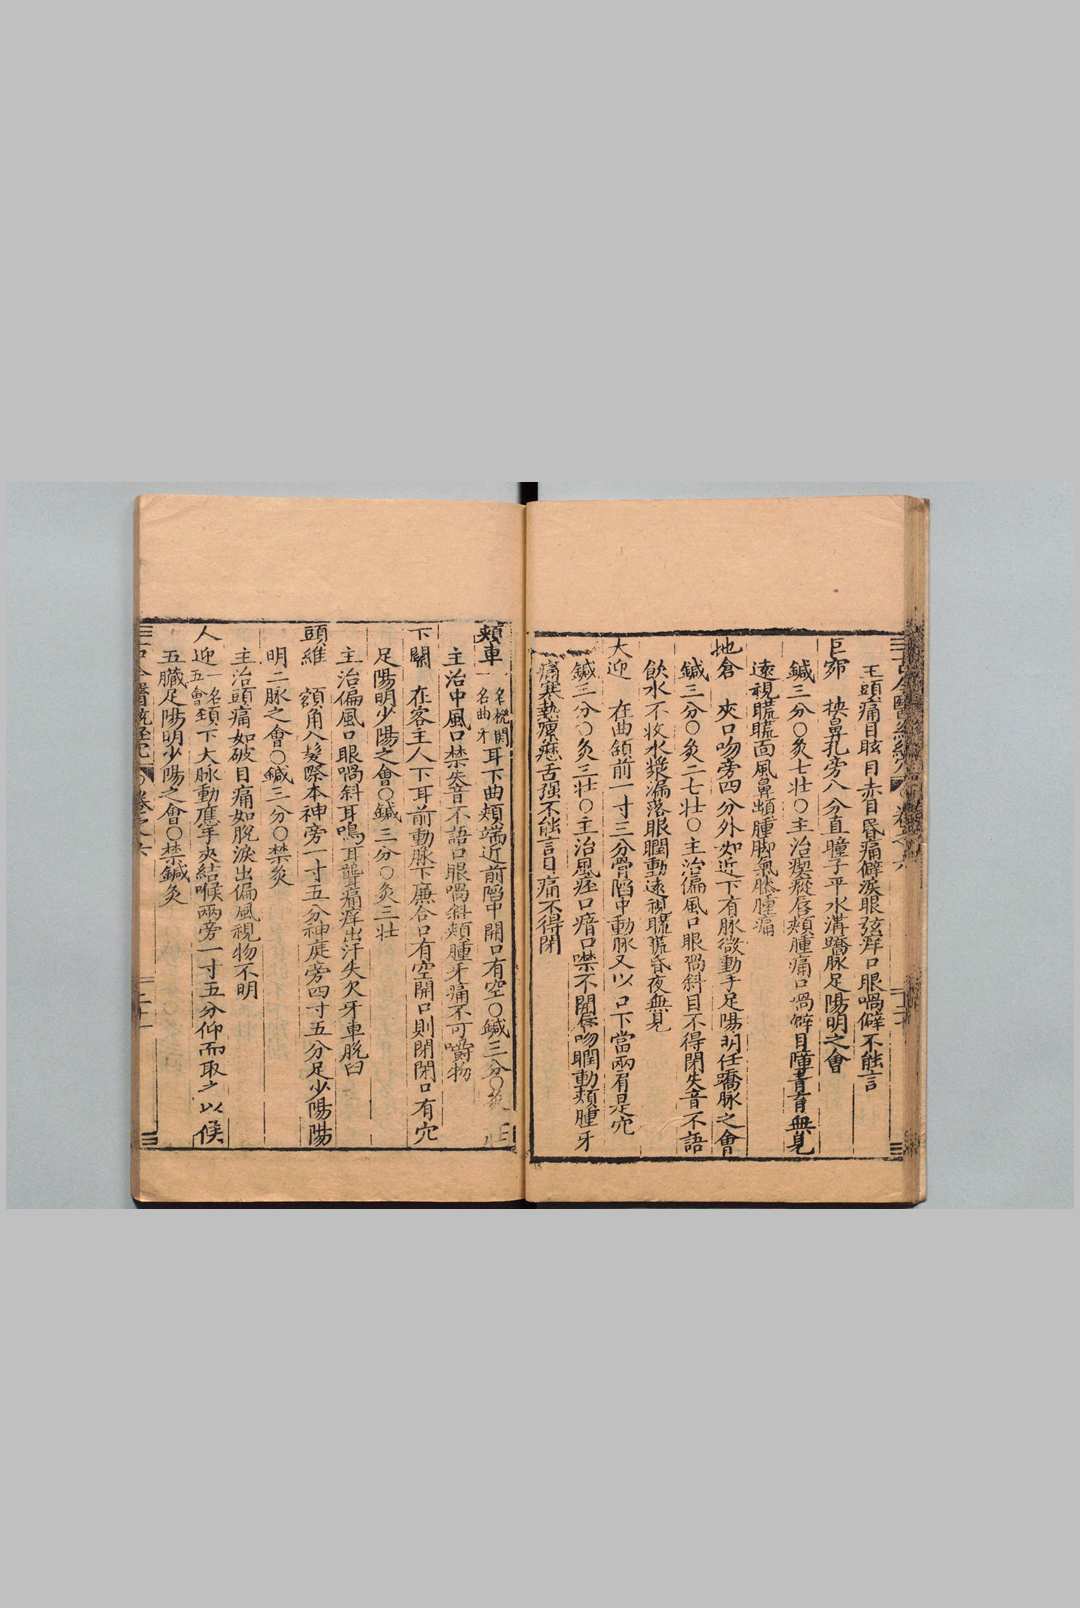 主頭痛目眩目赤目昏痛僻淚眼弦痒口眼喎僻不能言
巨窌 挾鼻孔旁八分直瞳子平水溝蹻脉足陽明之會
鍼三分○灸七壯○主治瘈瘲唇頰腫痛口喎僻目障青盲無見
遠視𥉂𥉂面風鼻䪼腫脚氣膝腫痛
地倉 夾口吻旁四分外如近下有脉微動手足陽明任蹻脉之會
鍼三分○灸二七壯○主治偏風口眼喎斜目不得閉失音不語
飲水不收水漿漏落眼瞤動遠視𥉂𥉂昏夜無見
大迎 在曲頷前一寸三分骨陷中動脉又以口下當兩肩是穴
鍼三分○灸三壯○主治風痓口瘖口噤不開唇吻瞤動頰腫牙
痛寒熱瘰癧舌强不能言目痛不得閉
頰車 一名機關一名曲牙 耳下曲頰端近前陷中開口有空○鍼三分○灸 壯
主治中風口禁失音不語口眼喎斜頰腫牙痛不可嚼物
下關 在客主人下耳前動脉下廉合口有空開口則閉閉口有穴
足陽明少陽之會○鍼三分○灸三壯
主治偏風口眼喎斜耳鳴耳聾痛痒出汗失欠牙車脫臼
頭維 額角入髮際本神旁一寸五分神庭旁四寸五分足少陽陽
明二脉之會○鍼三分○禁灸
主治頭痛如破目痛如脫淚出偏風視物不明
人迎 一名五會 頸下大脉動應手夾結喉兩旁一寸五分仰而取之以候
五臟足陽明少陽之會○禁鍼灸
古今醫統經穴 卷之六